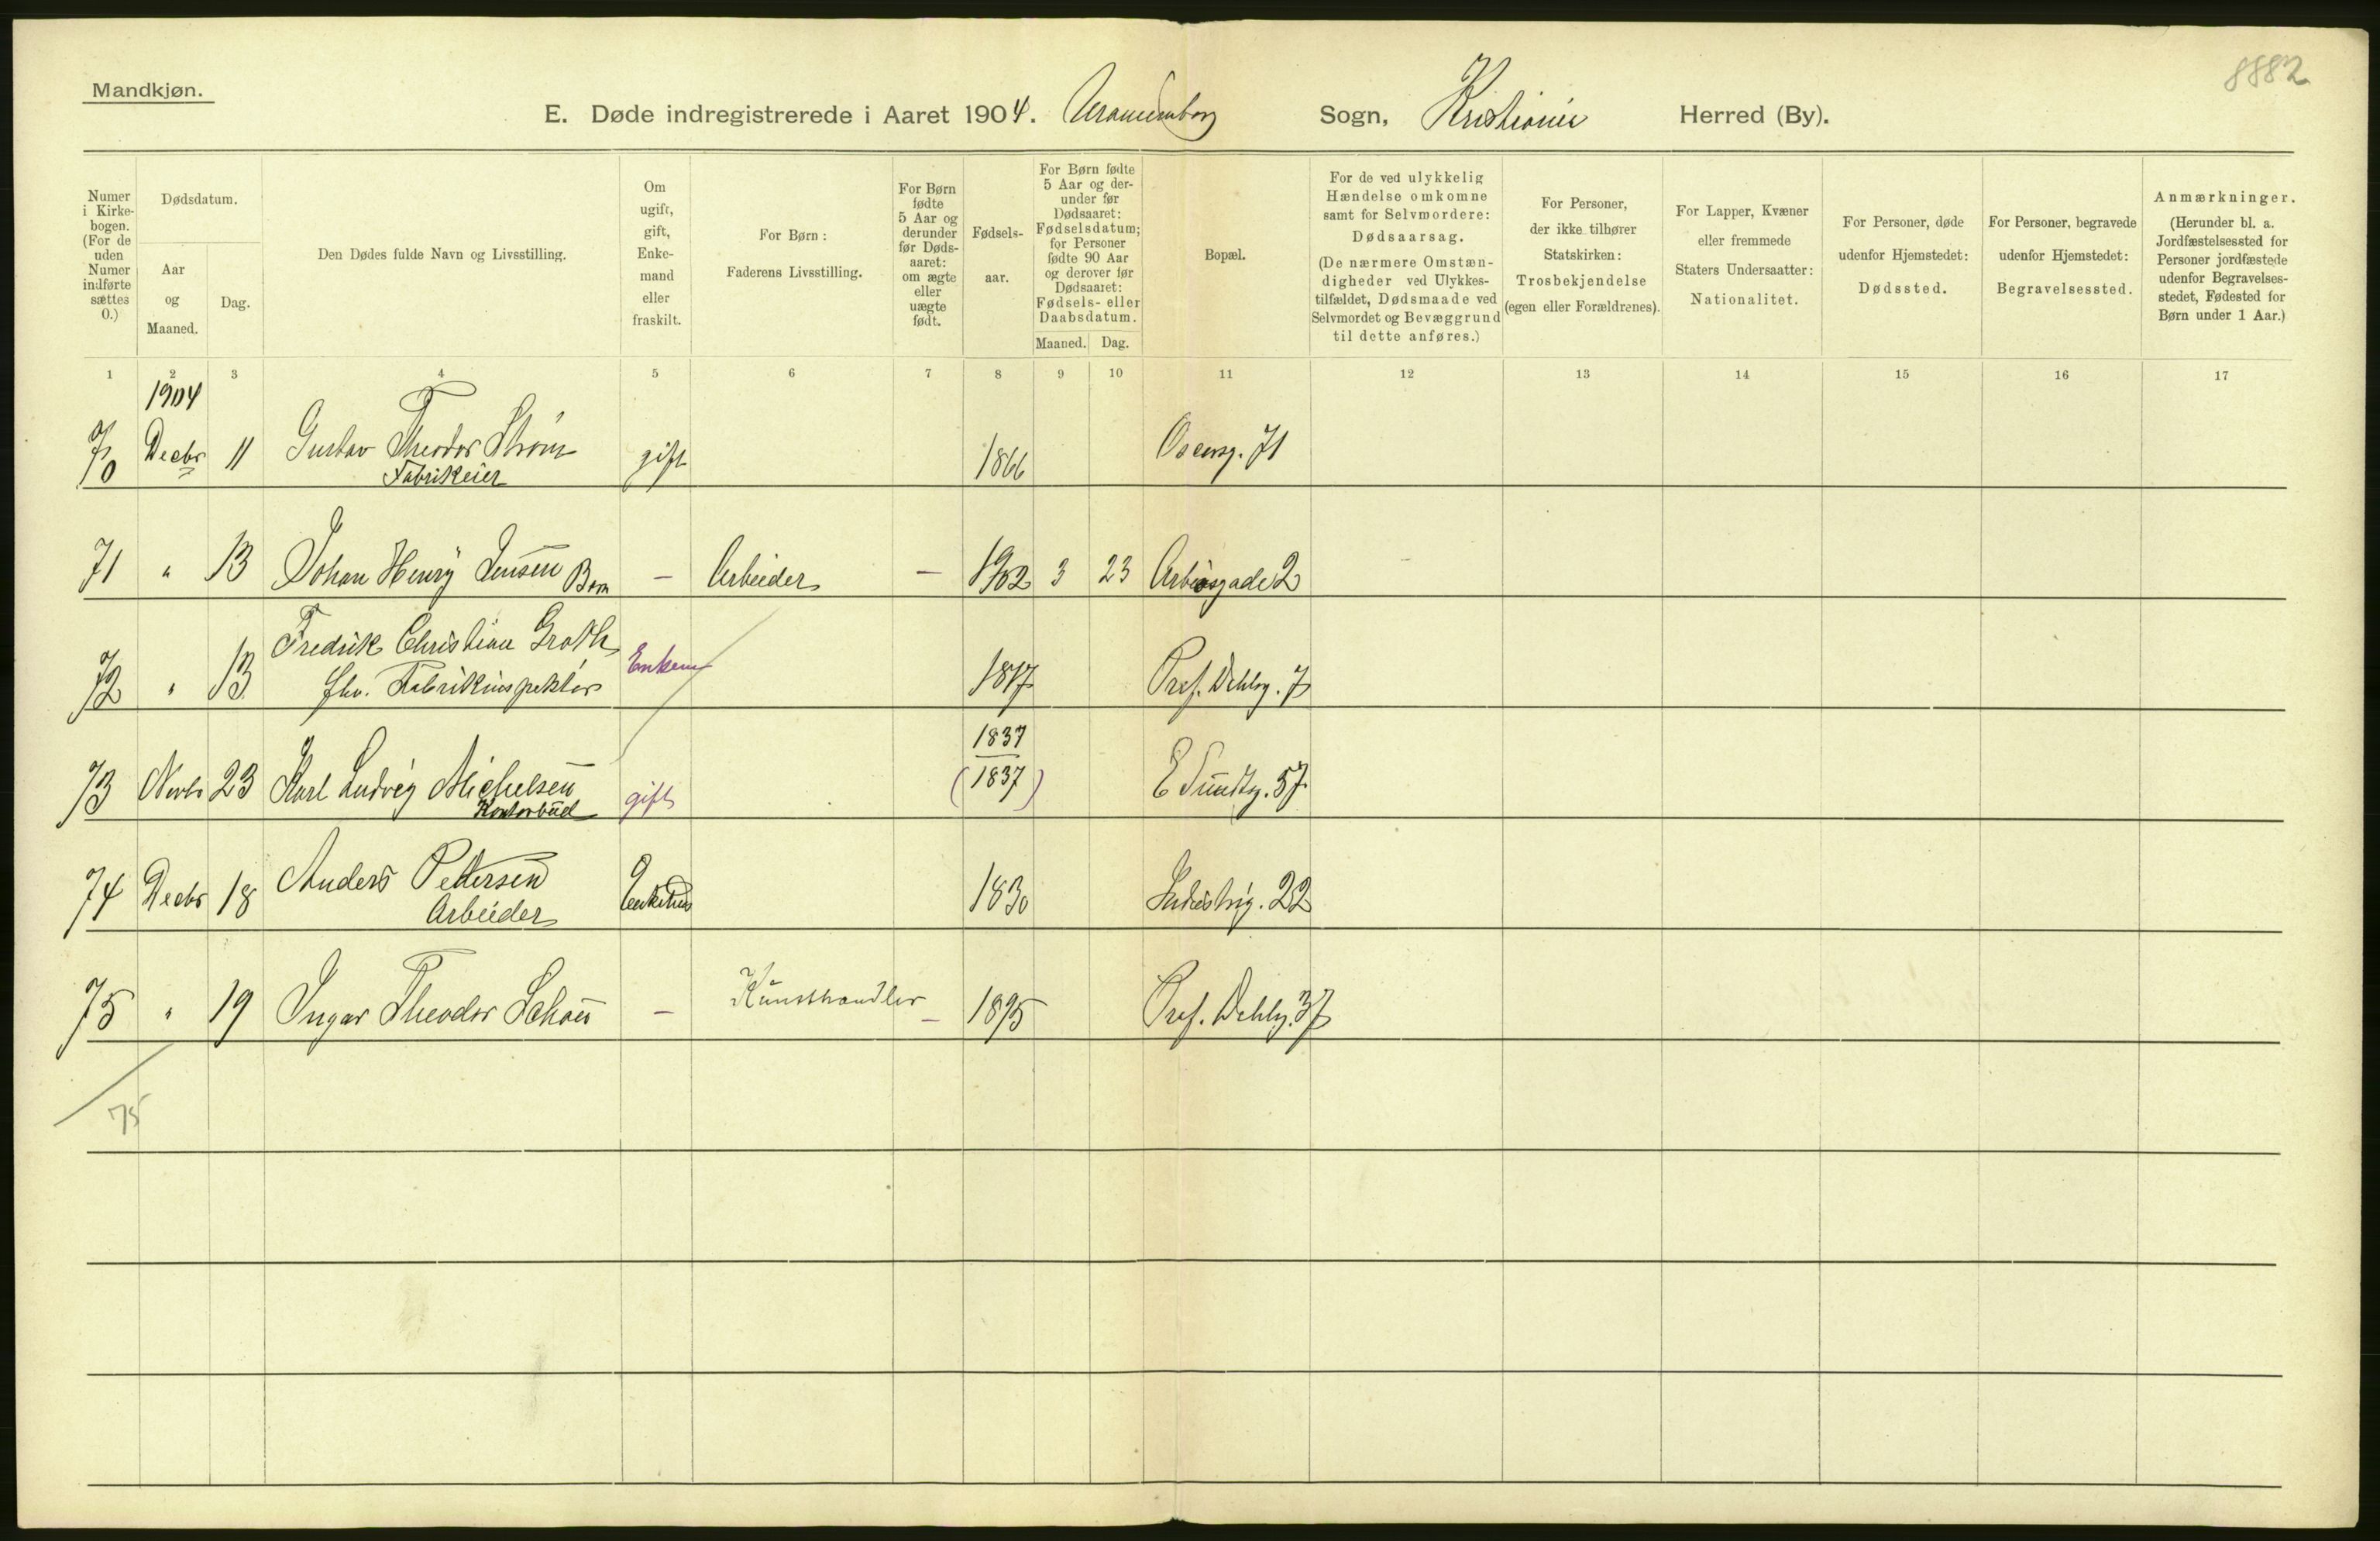 8882
Mandkjøn.
E. Døde indregistrerede i Aaret 1904. Uranienborg Sogn, Kristiania Herred (By).
Numer i Kirke-bogen. (For de uden Numer indførte sættes 0.)
Dødsdatum.
Aar og Maaned.
Dag.
Den Dødes fulde Navn og Livsstilling.
Om ugift, gift, Enke-mand eller fraskilt.
For Børn: Faderens Livsstilling.
For Børn fødte 5 Aar og derunder før Døds-aaret: om ægte eller uægte født.
Fødsels-aar.
For Børn fødte 5 Aar og der-under før Dødsaaret: Fødselsdatum; for Personer fødte 90 Aar og derover før Dødsaaret: Fødsels- eller Daabsdatum.
Maaned. Dag.
Bopæl.
For de ved ulykkelig Hændelse omkomne samt for Selvmordere: Dødsaarsag. (De nærmere Omstæn-digheder ved Ulykkes-tilfældet, Dødsmaade ved Selvmordet og Bevæggrund til dette anføres.)
For Personer, der ikke tilhører Statskirken: Trosbekjendelse (egen eller Forældrenes).
For Lapper, Kvæner eller fremmede Staters Undersaatter: Nationalitet.
For Personer, døde udenfor Hjemstedet: Dødssted.
For Personer, begravede udenfor Hjemstedet: Begravelsessted.
Anmærkninger. (Herunder bl. a. Jordfæstelsessted for Personer jordfæstede udenfor Begravelses-stedet, Fødested for Børn under 1 Aar.)
1 2 3 4 5 6 7 8 9 10 11 12 13 14 15 16 17
1904
70 Decbr 11 Gustav Theodor Strøm gift 1866 Oscarsg. 71
Fabrikeier
71 " 13 Johan Henry Jensen Barn — Arbeider — 1902 3 23 Arbiensgade 2
Fredrik Christian Groth
72 " 13 fhv. Fabrikinspektør Enkem 1817 Prof. Dahlsg. 7
1837
73 Novbr 23 Karl Ludvig Michelsen gift (1837) E Sundtsg. 57
Kontorbud
74 Decbr 18 Anders Pettersen 1830 Industrig. 22
Arbeider
75 " 19 Ingar Theodor Schou — Kunsthandler — 1895 Prof. Dahlsg. 37
75